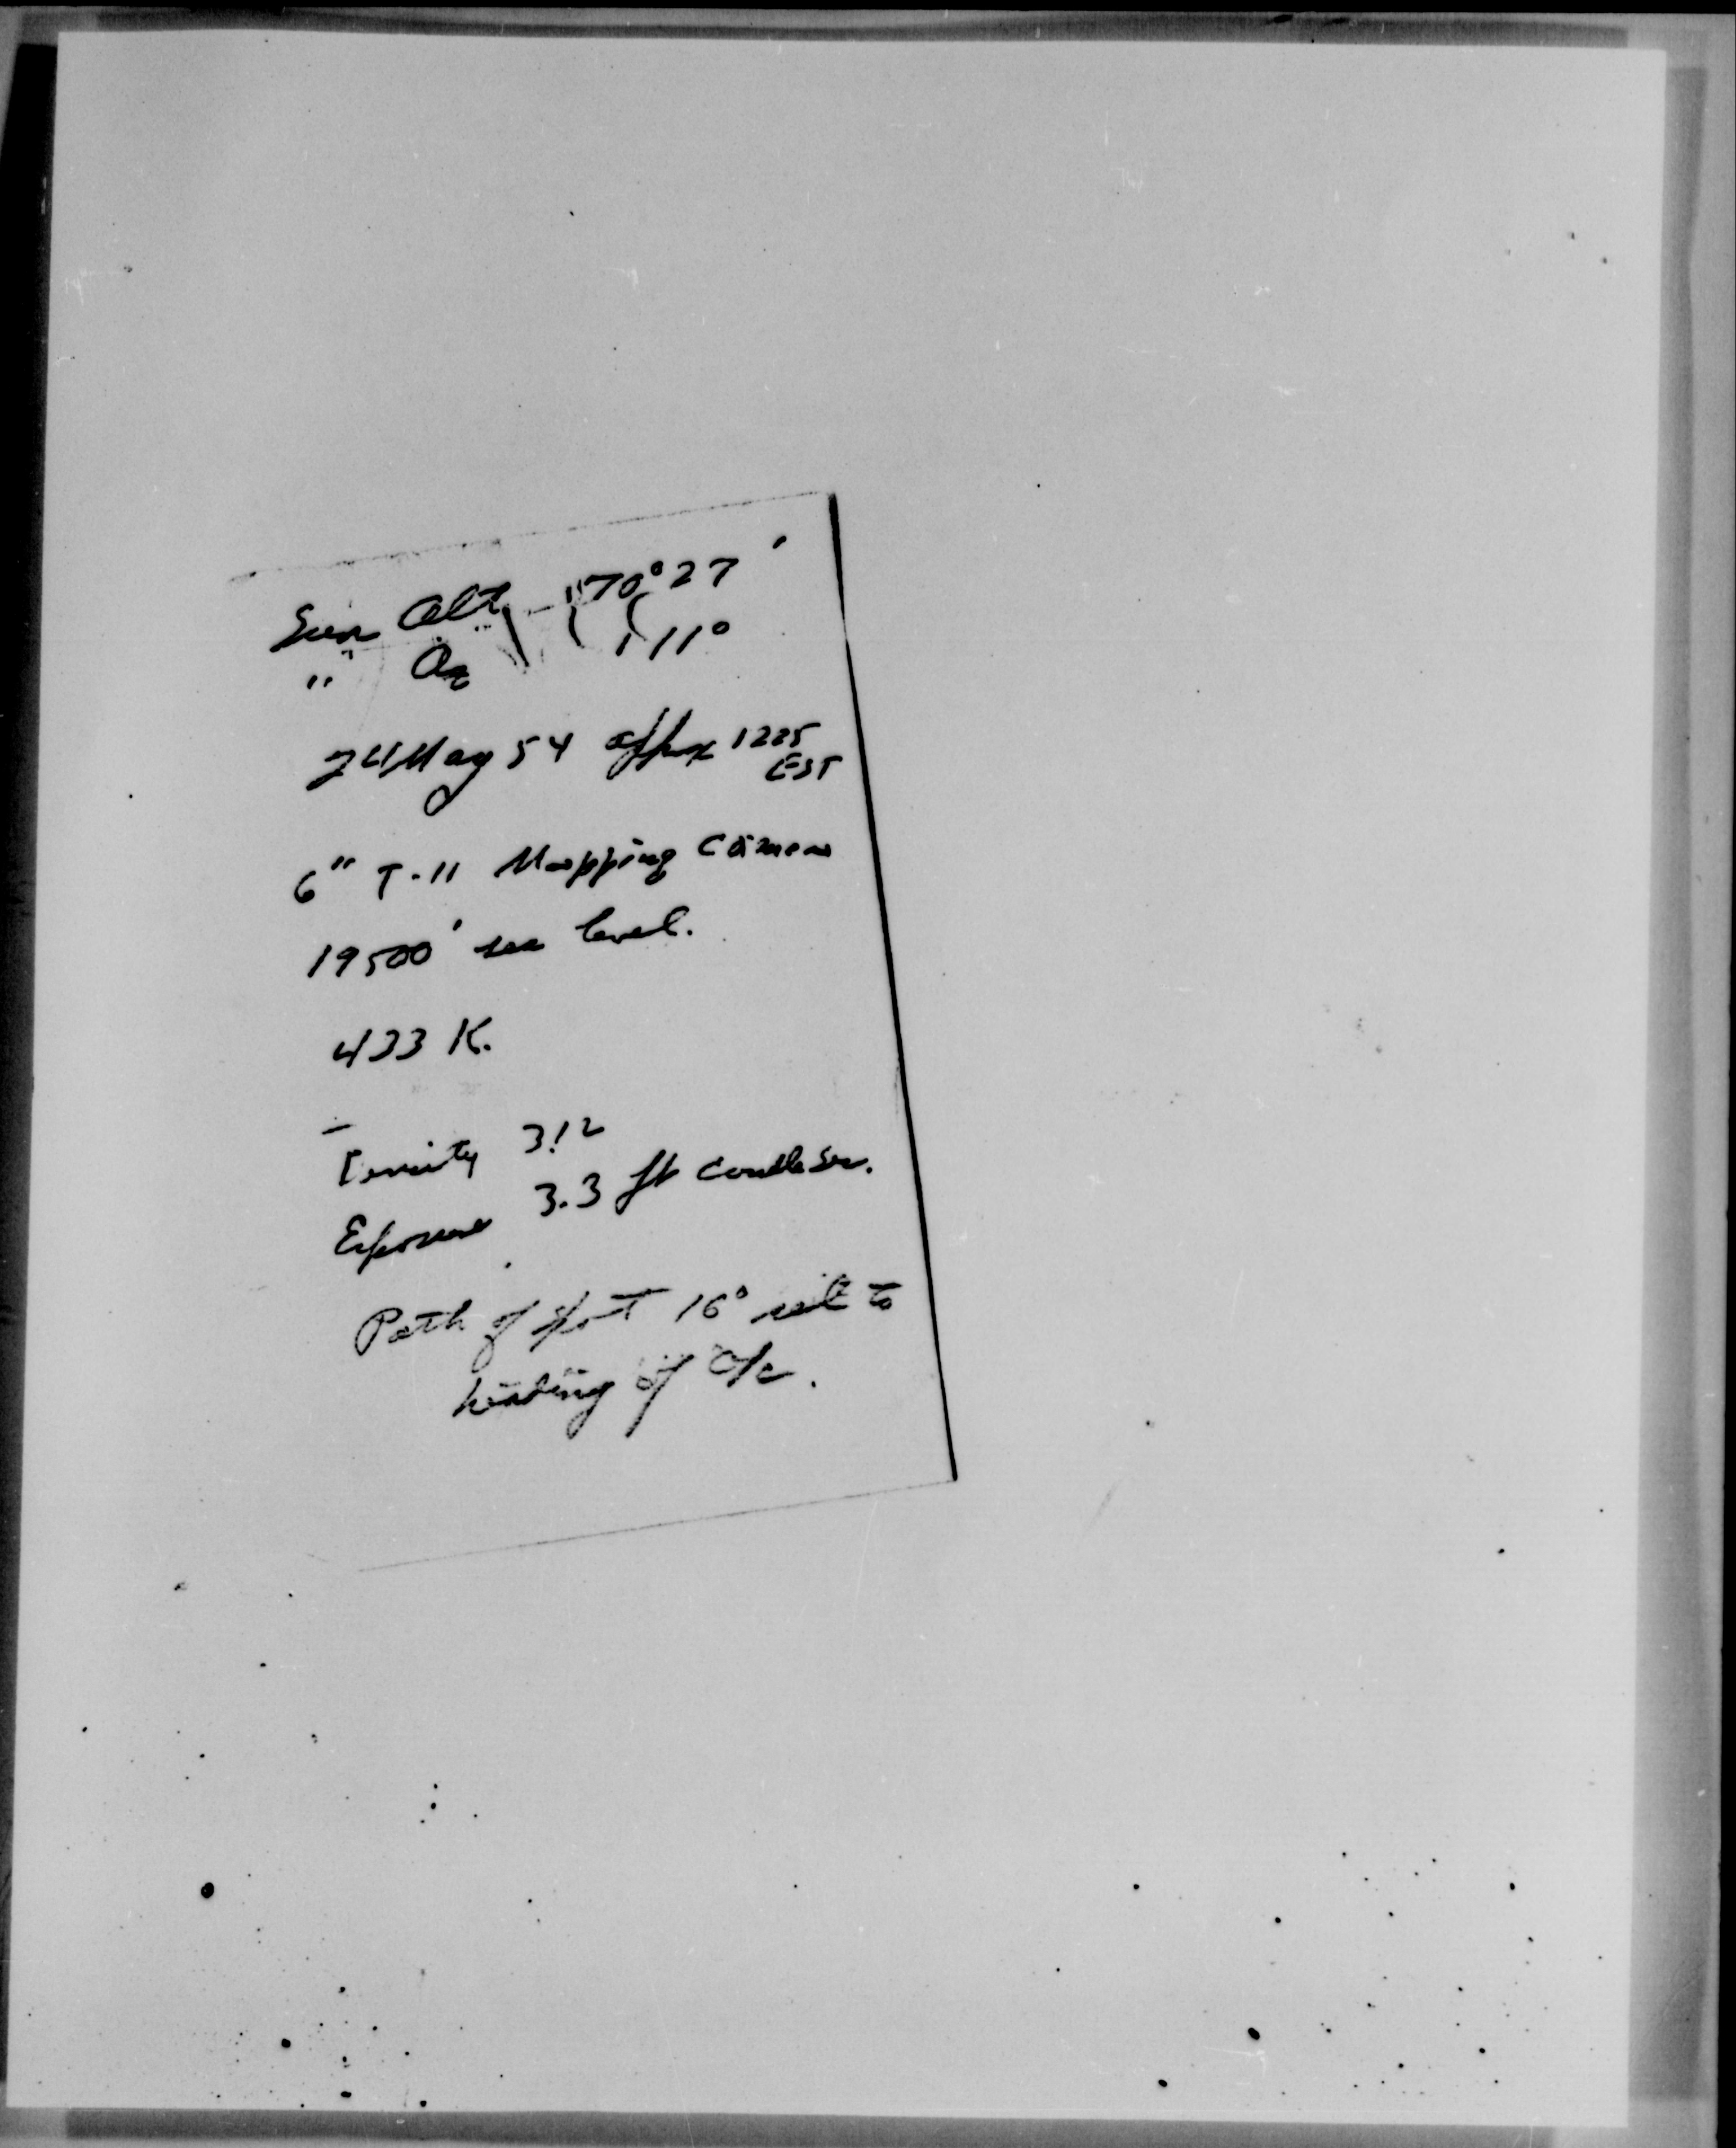 Sun Alt - 70° 27'
" Az 111°
24 May 54 approx 1225
EST
6" T-11 Mapping Camera
19500' sea level.
433 K.
Density 3.12
Exposure 3.3 ft candle sec.
Path of spot 16° rel to
heading of a/c.